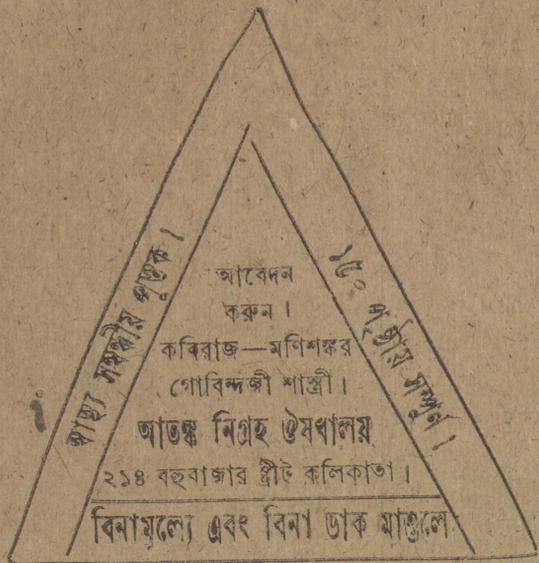 স্বাস্থ্য সম্বন্ধীয় পুস্তক।
১৫০ পৃষ্ঠায় সম্পূর্ন।
আবেদন
করুন।
কবিরাজ—মণিশঙ্কর
গোবিন্দজী শাস্ত্রী।
আতঙ্ক নিগ্রহ ঔষধালয়
২১৪ বহুবাজার ষ্ট্রীট কলিকাতা।
বিনামূল্যে এবং বিনা ডাক মাশুলে